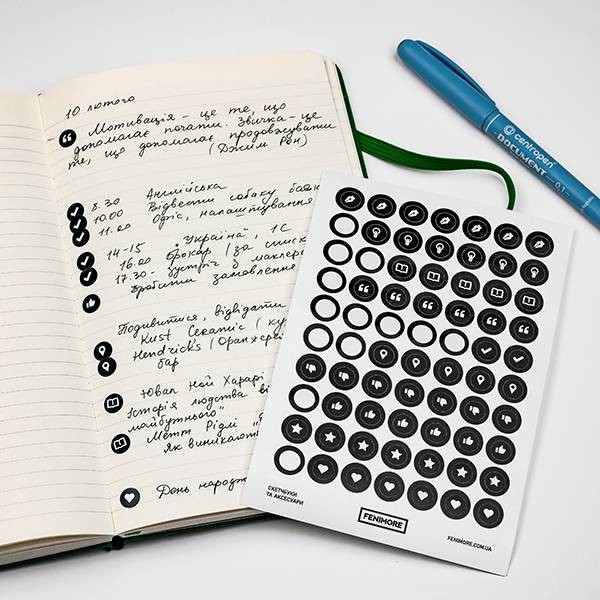 10 лютого
Мотивація – це те, що
допомагає почати. Звичка – це
те, що допомагає продовжувати
(Джим Рон)
8.30 Англійська
10.00 Відвезти собаку
11.00 Офіс, налаштування
14-15 "Україна", 1С
16.00 брокер (за списк
17.30 - зустріч з маклер
зробити замовлення
Подивитися, відвідати
Kust Ceramic (
Hendricks (Оранжере
бар
Ювал Ной Харарі
Історія людства ві
майбутнього"
Метт Рідлі "
Як виникают
День народж
centropen
DOCUMENT 0,1
СКЕТЧБУКИ
ТА АКСЕСУАРИ
FENIMORE
FENIMORE.COM.UA